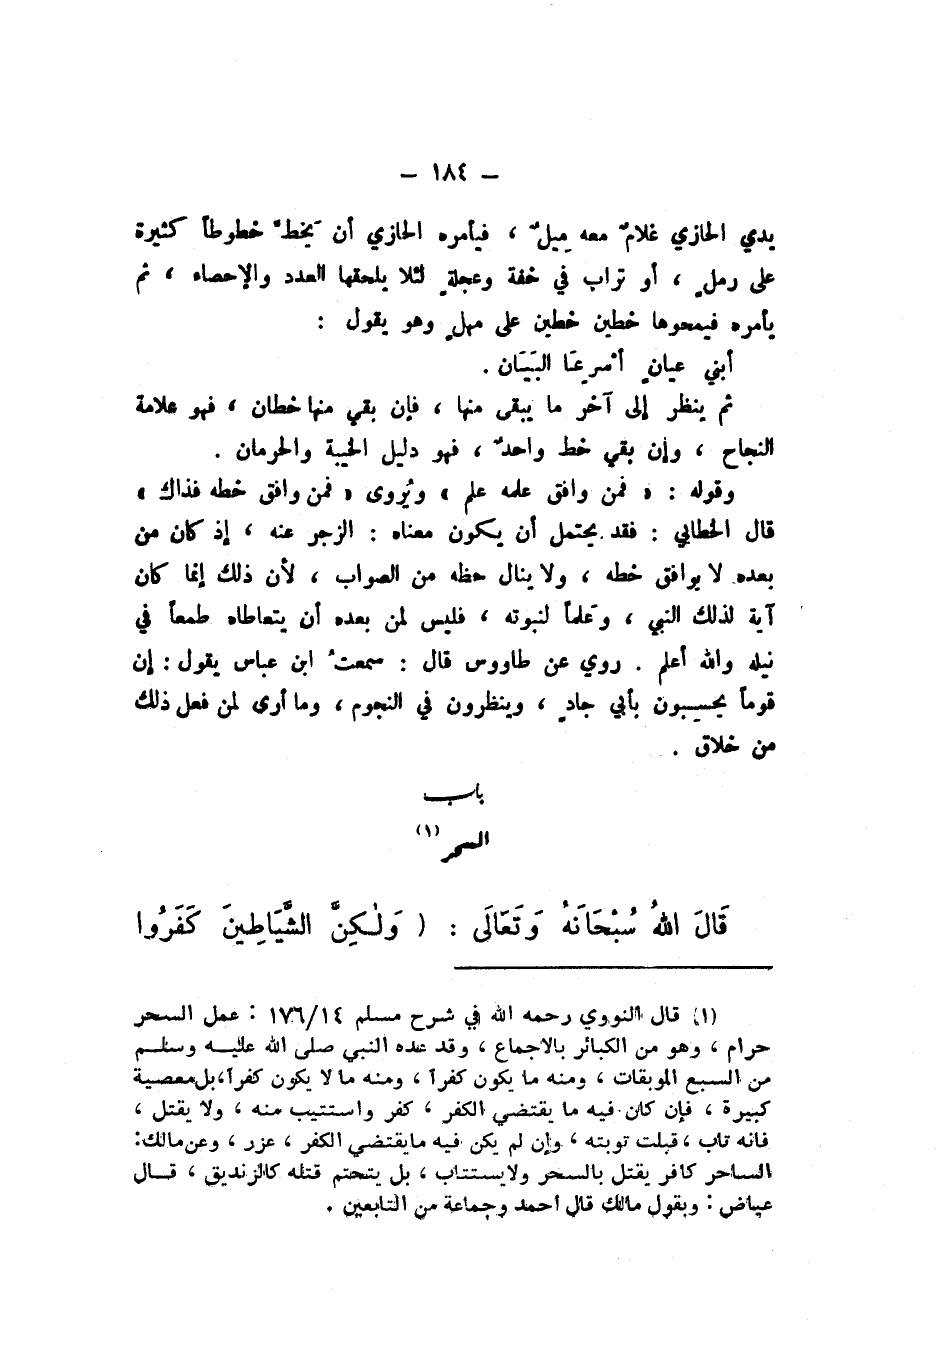 – ١٨٤ –
يدي الحازي غلامٌ معه مِيلٌ ، فيأمره الحازي أن يَخطَّ خطوطاً كثيرة
على رملٍ ، أو تراب في خفة وعجلةٍ لئلا يلحقها العدد والإحصاء ، ثم
يأمره فيمحوها خطين خطين على مهلٍ وهو يقول :
أبني عيانٍ أَسرِعَا البَيَان .
ثم ينظر إلى آخر ما يبقى منها ، فإن بقي منها خطان ، فهو علامة
النجاح ، وإن بقي خط واحدٌ ، فهو دليل الخيبة والحرمان .
وقوله : « فمن وافق علمه علم » ويُروى « فمن وافق خطه فذاك »
قال الخطابي : فقد يحتمل أن يكون معناه : الزجر عنه ، إذ كان من
بعده لا يوافق خطه ، ولا ينال حظه من الصواب ، لأن ذلك إنما كان
آية لذلك النبي ، وعَلماً لنبوته ، فليس لمن بعده أن يتعاطاه طمعاً في
نيله والله أعلم . روي عن طاووس قال : سمعتُ ابن عباس يقول : إن
قوماً يحسِبون بأبي جادٍ ، وينظرون في النجوم ، وما أرى لمن فعل ذلك
من خلاق .
باب
السحر (١)
قَالَ اللهُ سُبْحَانَهُ وَتَعَالَى : ( وَلٰكِنَّ الشَّيَاطِينَ كَفَرُوا
(١) قال النووي رحمه الله في شرح مسلم ١٧٦/١٤ : عمل السحر
حرام ، وهو من الكبائر بالاجماع ، وقد عده النبي صلى الله عليه وسلم
من السبع الموبقات ، ومنه ما يكون كفراً ، ومنه ما لا يكون كفراً ، بل معصية
كبيرة ، فإن كان فيه ما يقتضي الكفر ، كفر واستتيب منه ، ولا يقتل ،
فانه تاب ، قبلت توبته ، وإن لم يكن فيه مايقتضي الكفر ، عزر ، وعن مالك:
الساحر كافر يقتل بالسحر ولا يستتاب ، بل يتحتم قتله كالزنديق ، قال
عياض : وبقول مالك قال أحمد وجماعة من التابعين .